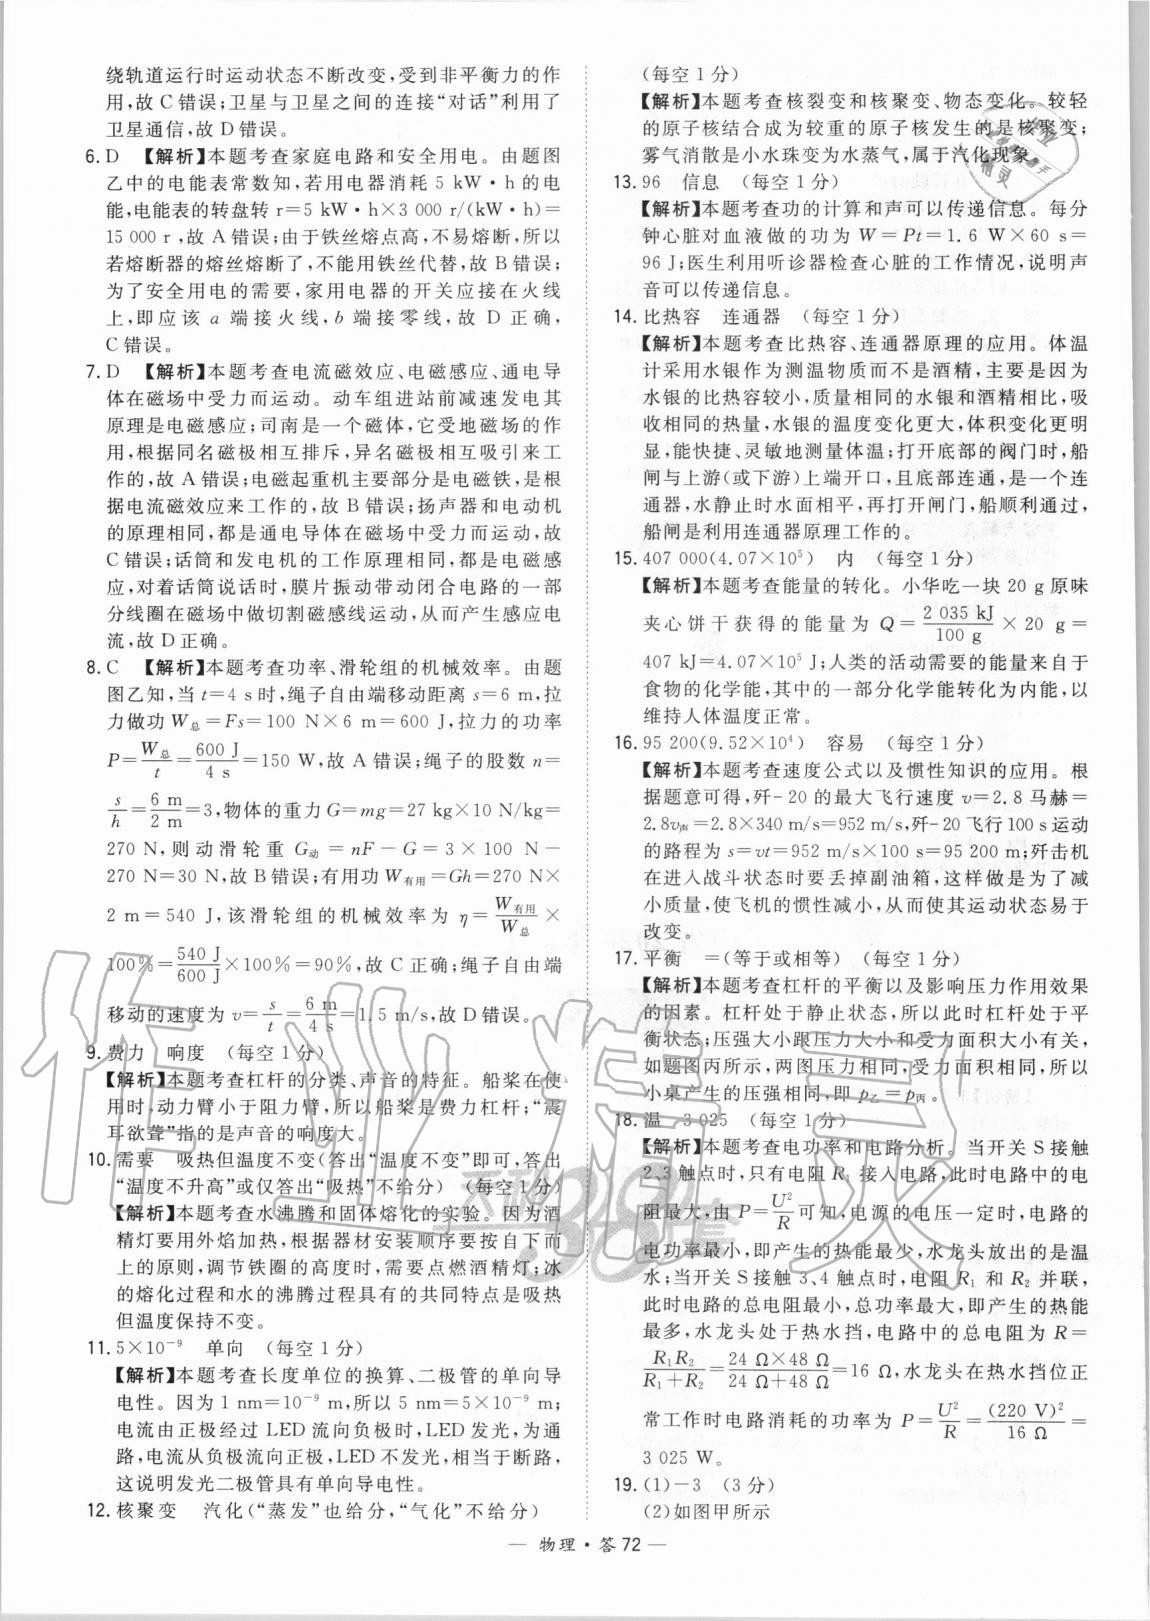 绕轨道运行时运动状态不断改变,受到非平衡力的作
用,故 C 错误;卫星与卫星之间的连接“对话”利用了
卫星通信,故 D 错误。
6. D 【解析】本题考查家庭电路和安全用电。由题图
乙中的电能表常数知,若用电器消耗 5 kW·h 的电
能,电能表的转盘转 r=5 kW·h×3 000 r/(kW·h)=
15 000 r,故 A 错误;由于铁丝熔点高,不易熔断,所以
若熔断器的熔丝熔断了,不能用铁丝代替,故 B 错误;
为了安全用电的需要,家用电器的开关应接在火线
上,即应该 a 端接火线,b 端接零线,故 D 正确,
C 错误。
7. D 【解析】本题考查电流磁效应、电磁感应、通电导
体在磁场中受力而运动。动车组进站前减速发电其
原理是电磁感应;司南是一个磁体,它受地磁场的作
用,根据同名磁极相互排斥,异名磁极相互吸引来工
作的,故 A 错误;电磁起重机主要部分是电磁铁,是根
据电流磁效应来工作的,故 B 错误;扬声器和电动机
的原理相同,都是通电导体在磁场中受力而运动,故
C 错误;话筒和发电机的工作原理相同,都是电磁感
应,对着话筒说话时,膜片振动带动闭合电路的一部
分线圈在磁场中做切割磁感线运动,从而产生感应电
流,故 D 正确。
8. C 【解析】本题考查功率、滑轮组的机械效率。由题
图乙知,当 t=4 s 时,绳子自由端移动距离 s=6 m,拉
力做功 W总=Fs=100 N×6 m=600 J,拉力的功率
P=W总/t=600 J/4 s=150 W,故 A 错误;绳子的股数 n=
s/h=6 m/2 m=3,物体的重力 G=mg=27 kg×10 N/kg=
270 N,则动滑轮重 G动=nF-G=3×100 N-
270 N=30 N,故 B 错误;有用功 W有用=Gh=270 N×
2 m=540 J,该滑轮组的机械效率为 η=W有用/W总×
100%=540 J/600 J×100%=90%,故 C 正确;绳子自由端
移动的速度为 v=s/t=6 m/4 s=1.5 m/s,故 D 错误。
9. 费力 响度 (每空 1 分)
【解析】本题考查杠杆的分类、声音的特征。船桨在使
用时,动力臂小于阻力臂,所以船桨是费力杠杆;“震
耳欲聋”指的是声音的响度大。
10. 需要 吸热但温度不变(答出“温度不变”即可,答出
“温度不升高”或仅答出“吸热”不给分) (每空 1 分)
【解析】本题考查水沸腾和固体熔化的实验。因为酒
精灯要用外焰加热,根据器材安装顺序要按自下而
上的原则,调节铁圈的高度时,需要点燃酒精灯;冰
的熔化过程和水的沸腾过程具有的共同特点是吸热
但温度保持不变。
11. 5×10⁻⁹ 单向 (每空 1 分)
【解析】本题考查长度单位的换算、二极管的单向导
电性。因为 1 nm=10⁻⁹ m,所以 5 nm=5×10⁻⁹ m;
电流由正极经过 LED 流向负极时,LED 发光,为通
路,电流从负极流向正极,LED 不发光,相当于断路,
这说明发光二极管具有单向导电性。
12. 核聚变 汽化(“蒸发”也给分,“气化”不给分)
(每空 1 分)
【解析】本题考查核裂变和核聚变、物态变化。较轻
的原子核结合成为较重的原子核发生的是核聚变;
雾气消散是小水珠变为水蒸气,属于汽化现象。
13. 96 信息 (每空 1 分)
【解析】本题考查功的计算和声可以传递信息。每分
钟心脏对血液做的功为 W=Pt=1.6 W×60 s=
96 J;医生利用听诊器检查心脏的工作情况,说明声
音可以传递信息。
14. 比热容 连通器 (每空 1 分)
【解析】本题考查比热容、连通器原理的应用。体温
计采用水银作为测温物质而不是酒精,主要是因为
水银的比热容较小,质量相同的水银和酒精相比,吸
收相同的热量,水银的温度变化更大,体积变化更明
显,能快捷、灵敏地测量体温;打开底部的阀门时,船
闸与上游(或下游)上端开口,且底部连通,是一个连
通器,水静止时水面相平,再打开闸门,船顺利通过,
船闸是利用连通器原理工作的。
15. 407 000(4.07×10⁵) 内 (每空 1 分)
【解析】本题考查能量的转化。小华吃一块 20 g 原味
夹心饼干获得的能量为 Q=2 035 kJ/100 g×20 g=
407 kJ=4.07×10⁵ J;人类的活动需要的能量来自于
食物的化学能,其中的一部分化学能转化为内能,以
维持人体温度正常。
16. 95 200(9.52×10⁴) 容易 (每空 1 分)
【解析】本题考查速度公式以及惯性知识的应用。根
据题意可得,歼-20 的最大飞行速度 v=2.8 马赫=
2.8v声=2.8×340 m/s=952 m/s,歼-20 飞行 100 s 运动
的路程为 s=vt=952 m/s×100 s=95 200 m;歼击机
在进入战斗状态时要丢掉副油箱,这样做是为了减
小质量,使飞机的惯性减小,从而使其运动状态易于
改变。
17. 平衡 =(等于或相等) (每空 1 分)
【解析】本题考查杠杆的平衡以及影响压力作用效果
的因素。杠杆处于静止状态,所以此时杠杆处于平
衡状态;压强大小跟压力大小和受力面积大小有关,
如题图丙所示,两图压力相同、受力面积相同,所以
小桌产生的压强相同,即 p乙=p丙。
18. 温 3 025 (每空 1 分)
【解析】本题考查电功率和电路分析。当开关 S 接触
2、3 触点时,只有电阻 R₁ 接入电路,此时电路中的电
阻最大,由 P=U²/R 可知,电源的电压一定时,电路的
电功率最小,即产生的热能最少,水龙头放出的是温
水;当开关 S 接触 3、4 触点时,电阻 R₁ 和 R₂ 并联,
此时电路的总电阻最小,总功率最大,即产生的热能
最多,水龙头处于热水挡,电路中的总电阻为 R=
R₁R₂/(R₁+R₂)=(24 Ω×48 Ω)/(24 Ω+48 Ω)=16 Ω,水龙头在热水挡位正
常工作时电路消耗的功率为 P=U²/R=(220 V)²/16 Ω=
3 025 W。
19. (1)-3 (3 分)
(2)如图甲所示
— 物理·答 72 —
作业精灵
天利38套